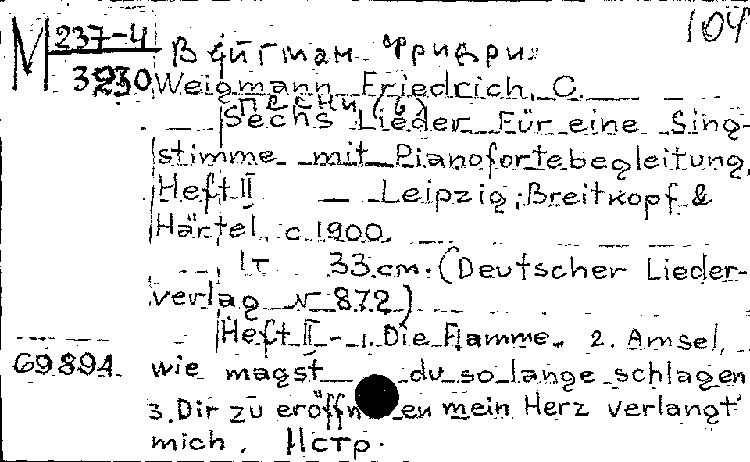 104
М 237-4
3930 Вейгман Фридрих
Weigmann Friedrich, C.
Песни (6)
Sechs Lieder Für eine Sing-
stimme mit Pianofortebegleitung,
Heft II — Leipzig, Breitkopf &
Härtel, c.1900.
1т 33 cm. (Deutscher Lieder-
verlag № 872)
Heft II - 1. Die Flamme. 2. Amsel,
69894 wie magst du so lange schlagen
3. Dir zu eröffnen mein Herz verlangt
mich.